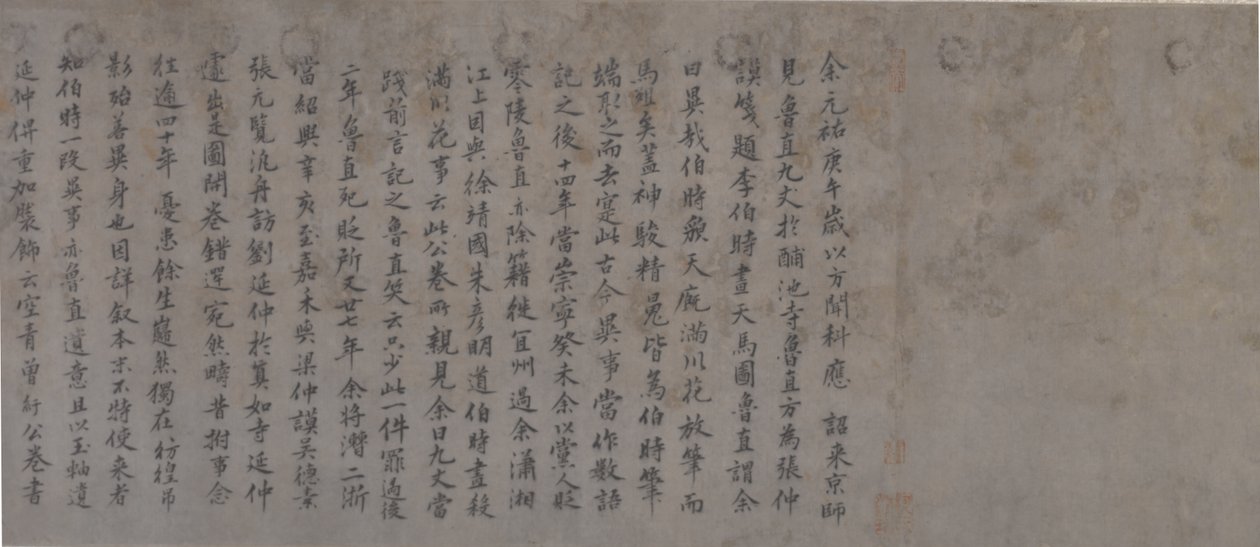 余元祐庚午歲以方聞科應　詔来京師
見魯直九丈於酺池寺魯直方為張仲
謨箋題李伯時畫天馬圖魯直謂余
曰異哉伯時貌天廐滿川花放筆而
馬殂矣蓋神駿精魄皆為伯時筆
端取之而去寔此古今異事當作數語
記之後十四年當崇寧癸未余以黨人貶
零陵魯直亦除籍徙冝州過余瀟湘
江上因與徐靖國朱彦明道伯時畫殺
滿川花事云此公卷所親見余曰九丈當
踐前言記之魯直笑云只少此一件罪過後
二年魯直死貶所又廿七年余将漕二浙
當紹興辛亥至嘉禾與梁仲謨吴德素
張元覽汎舟訪劉延仲於真如寺延仲
遽出是圖開卷錯愕宛然疇昔拊事念
往逾四十年憂患餘生巋然獨在彷徨弔
影殆若異身也因詳叙本末不特使来者
知伯時一段異事亦魯直遺意且以玉軸遺
延仲俾重加裝飾云空青曾紆公卷書